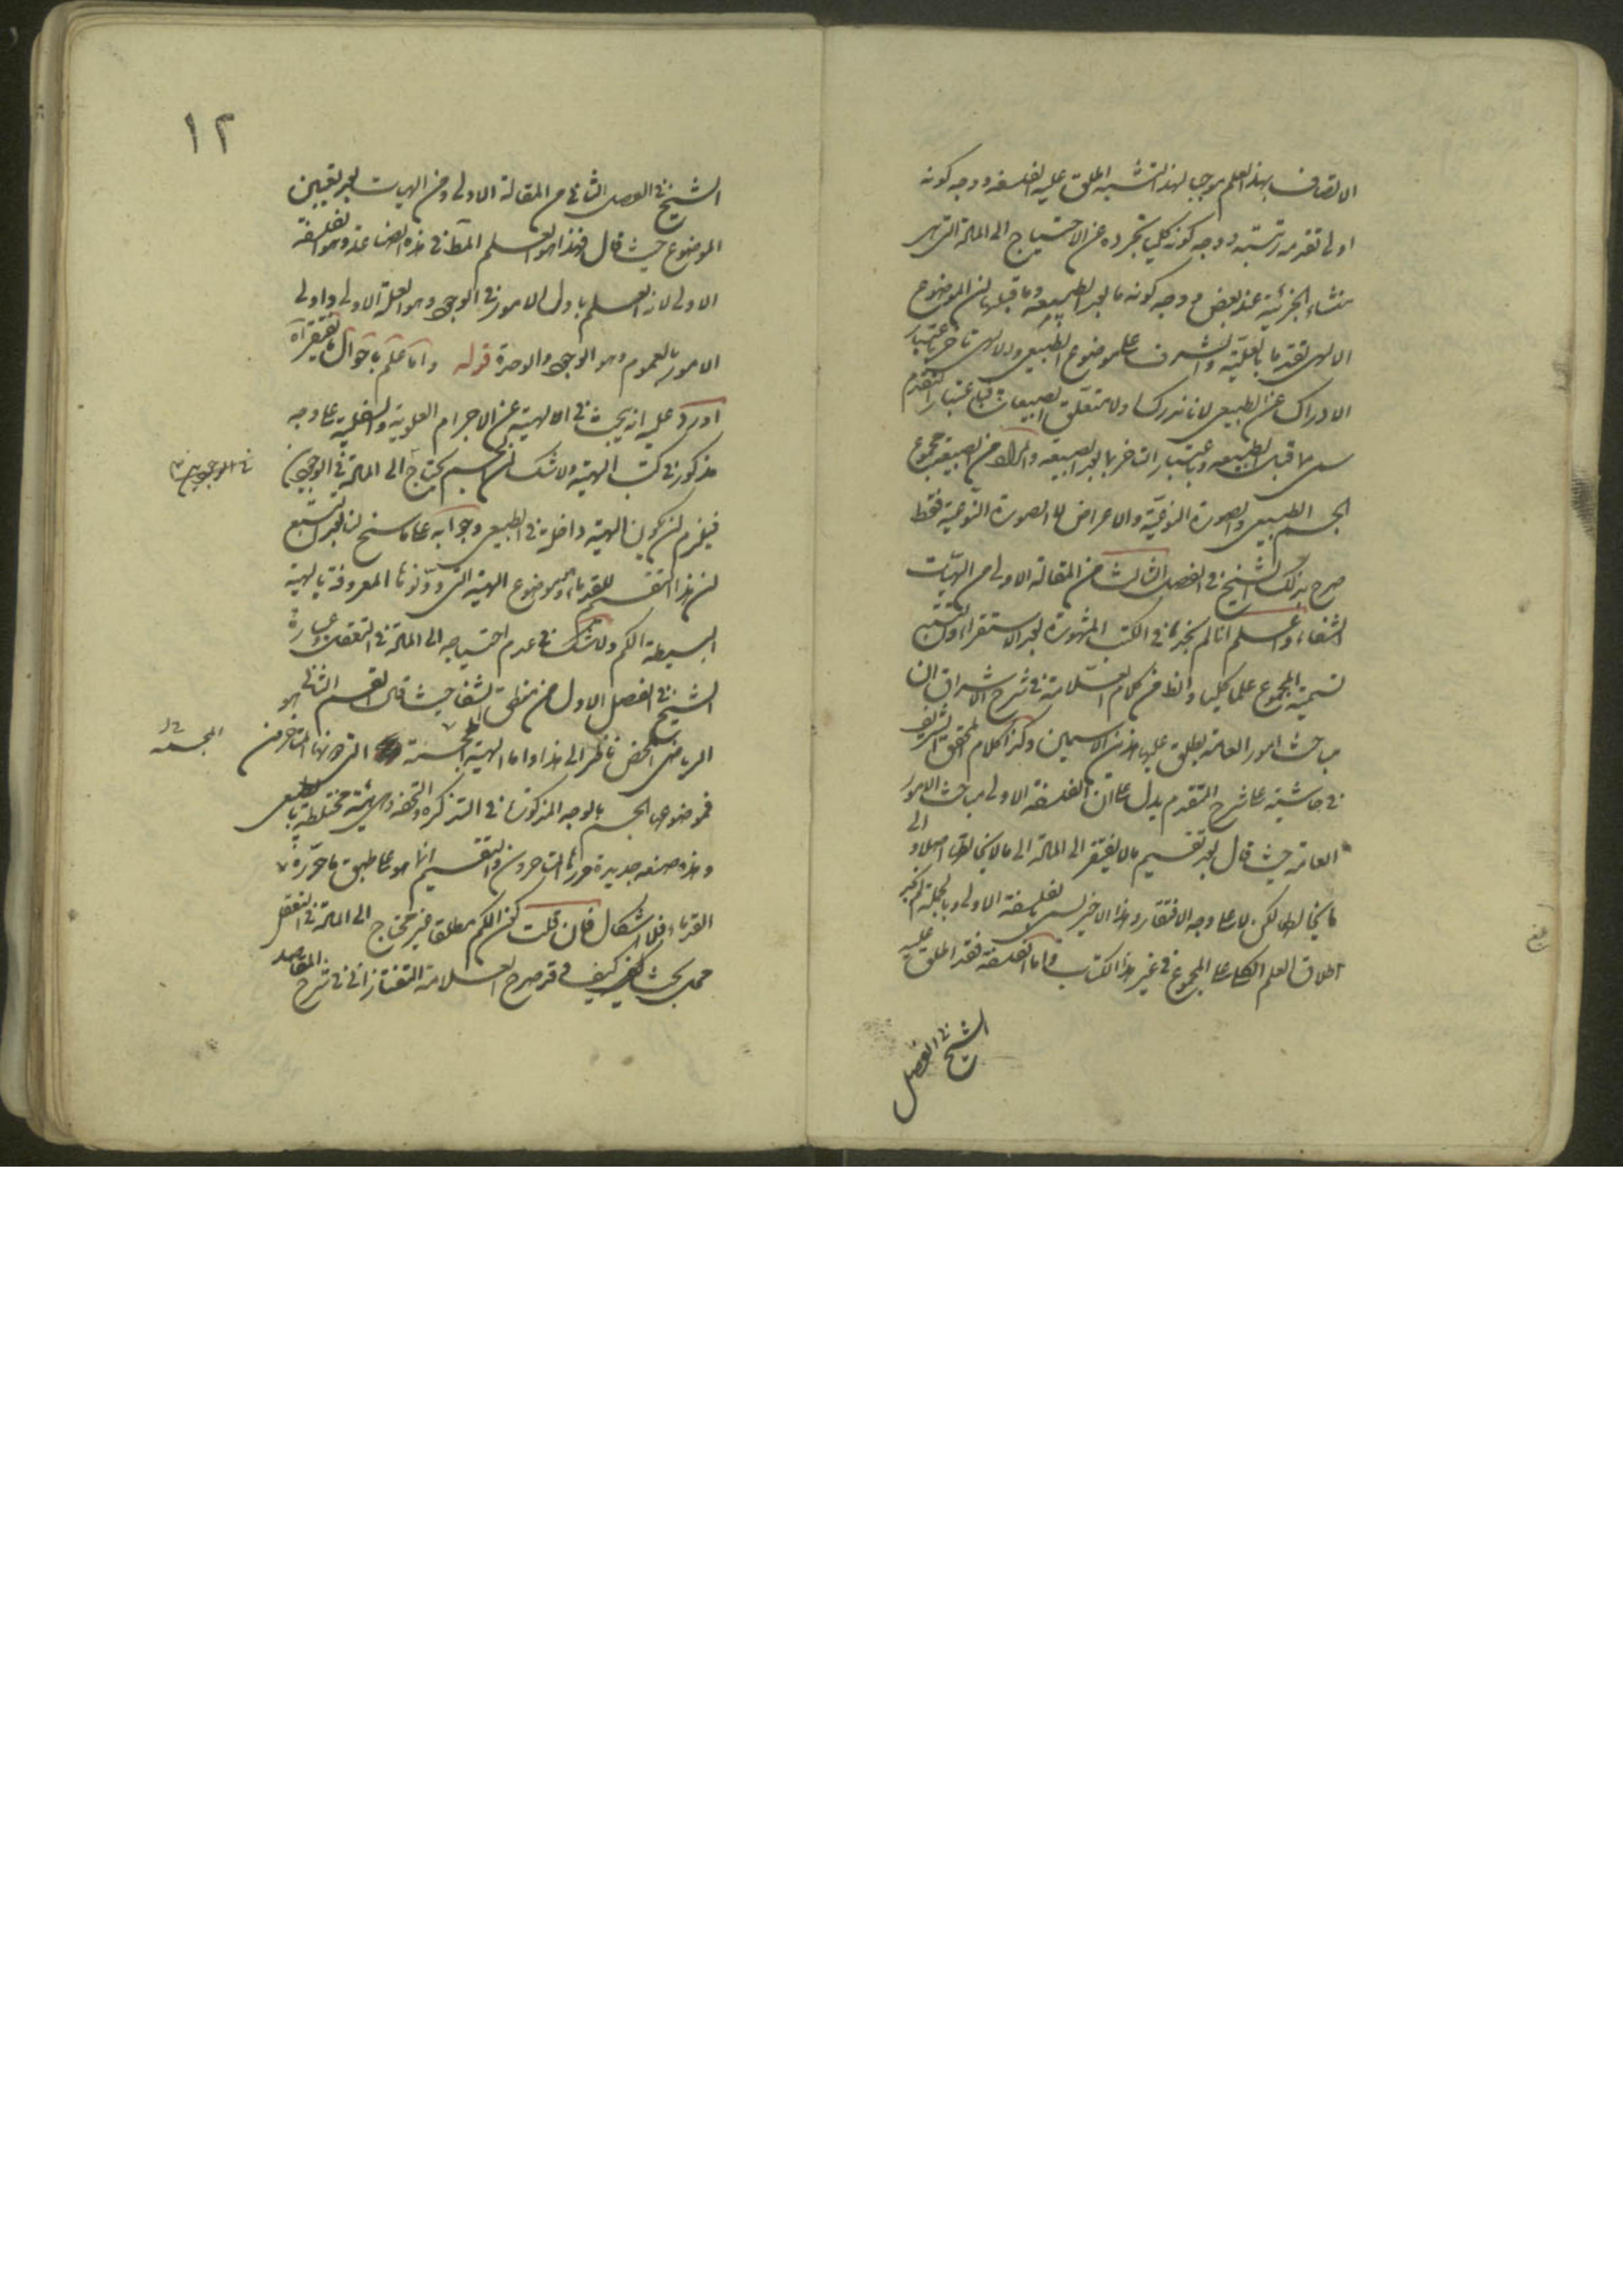 الاتصاف بهذا العلم موجب لهذا التشبه اطلق عليه الفلسفة ووجه كونه
اولى تقدمه رتبته ووجه كونه كليا تجرده عن الاحتياج الى المادة التي هي
منشاء الجزئية عند بعض ووجه كونه ما بعد الطبيعة وما قبلها ان الموضوع
الالهي تقدما بالعلية والشرف على موضوع الطبيعي وللالهي تاخر باعتبار
الادراك عن الطبيعي لانا ندرك اولا متعلق الطبيعيات فباعتبار التقدم
سمي ما قبل الطبيعة وباعتبار التاخر ما بعد الطبيعة والمراد من الطبيعة مجموع
الجسم الطبيعي والصورة النوعية والاعراض لا الصورة النوعية فقط
صرح بذلك الشيخ في الفصل الثالث من المقالة الاولى من الهيات
الشفاء واعلم انا لم نجد في الكتب المشهورة بعد الاستقراء والتتبع
تسمية المجموع علما كليا والظ من كلام العلامة في شرح الاشراق ان
مباحث امور العامة يطلق عليها هذان الاسمين وكذا كلام المحقق الشريف
في حاشيته على شرح المتقدم يدل على ان الفلسفة الاولى مباحث الامور
العامة حيث قال بعد تقسيم ما لا يفتقر الى المادة الى ما لا يخالطها اصلا والى
ما يخالطها لكن لا على وجه الافتقار وهذا الاخير يسمى بالفلسفة الاولى وبالجملة لم نجد
اطلاق العلم الكلي على المجموع في غير هذا الكتاب واما الفلسفة فقد اطلق عليه
الشيخ في الفصل
١٢
الشيخ في الفصل الثاني من المقالة الاولى من الهيات بعد تعيين
الموضوع حيث قال فهذا هو العلم المط في هذه الصناعة وهو الفلسفة
الاولى لانه العلم باول الامور في الوجود وهو العلة الاولى واول
الامور بالعموم وهو الوجود والوحدة قوله واما علم باحوال ما يفتقر آه
اورد عليه انه يبحث في الهيئة عن الاجرام العلوية والسفلية على وجه
مذكور في كتب الهيئة ولا شك ان الجسم يحتاج الى المادة في الوجودين
في الوجودين
فيلزم ان يكون الهيئة داخلة في الطبيعي وجوابه على ما سنح لنا بعد التتبع
ان هذا التقسيم للقدماء وموضوع الهيئة التي دونوها المعروفة بالهيئة
البسيطة الكم ولا شك في عدم احتياجه الى المادة في التعقل وعبارة
الشيخ في الفصل الاول من منطق الشفا حيث قال القسم الثاني هو
الرياضي المحض ناظر الى هذا واما الهيئة المجسمة التي دونها المتاخرون
المجسمة
فموضوعها الجسم بالوجه المذكور في التذكرة والتحفة وهي هيئة مختلطة بالطبيعي
وهذه صنعة جديدة حررها المتاخرون والتقسيم انما هو على طبق ما حرره
القدماء فلا اشكال فان قلت كون الكم مطلقا غير محتاج الى المادة في التعقل
محل بحث كيف وقد صرح العلامة التفتازاني في شرح المقاصد